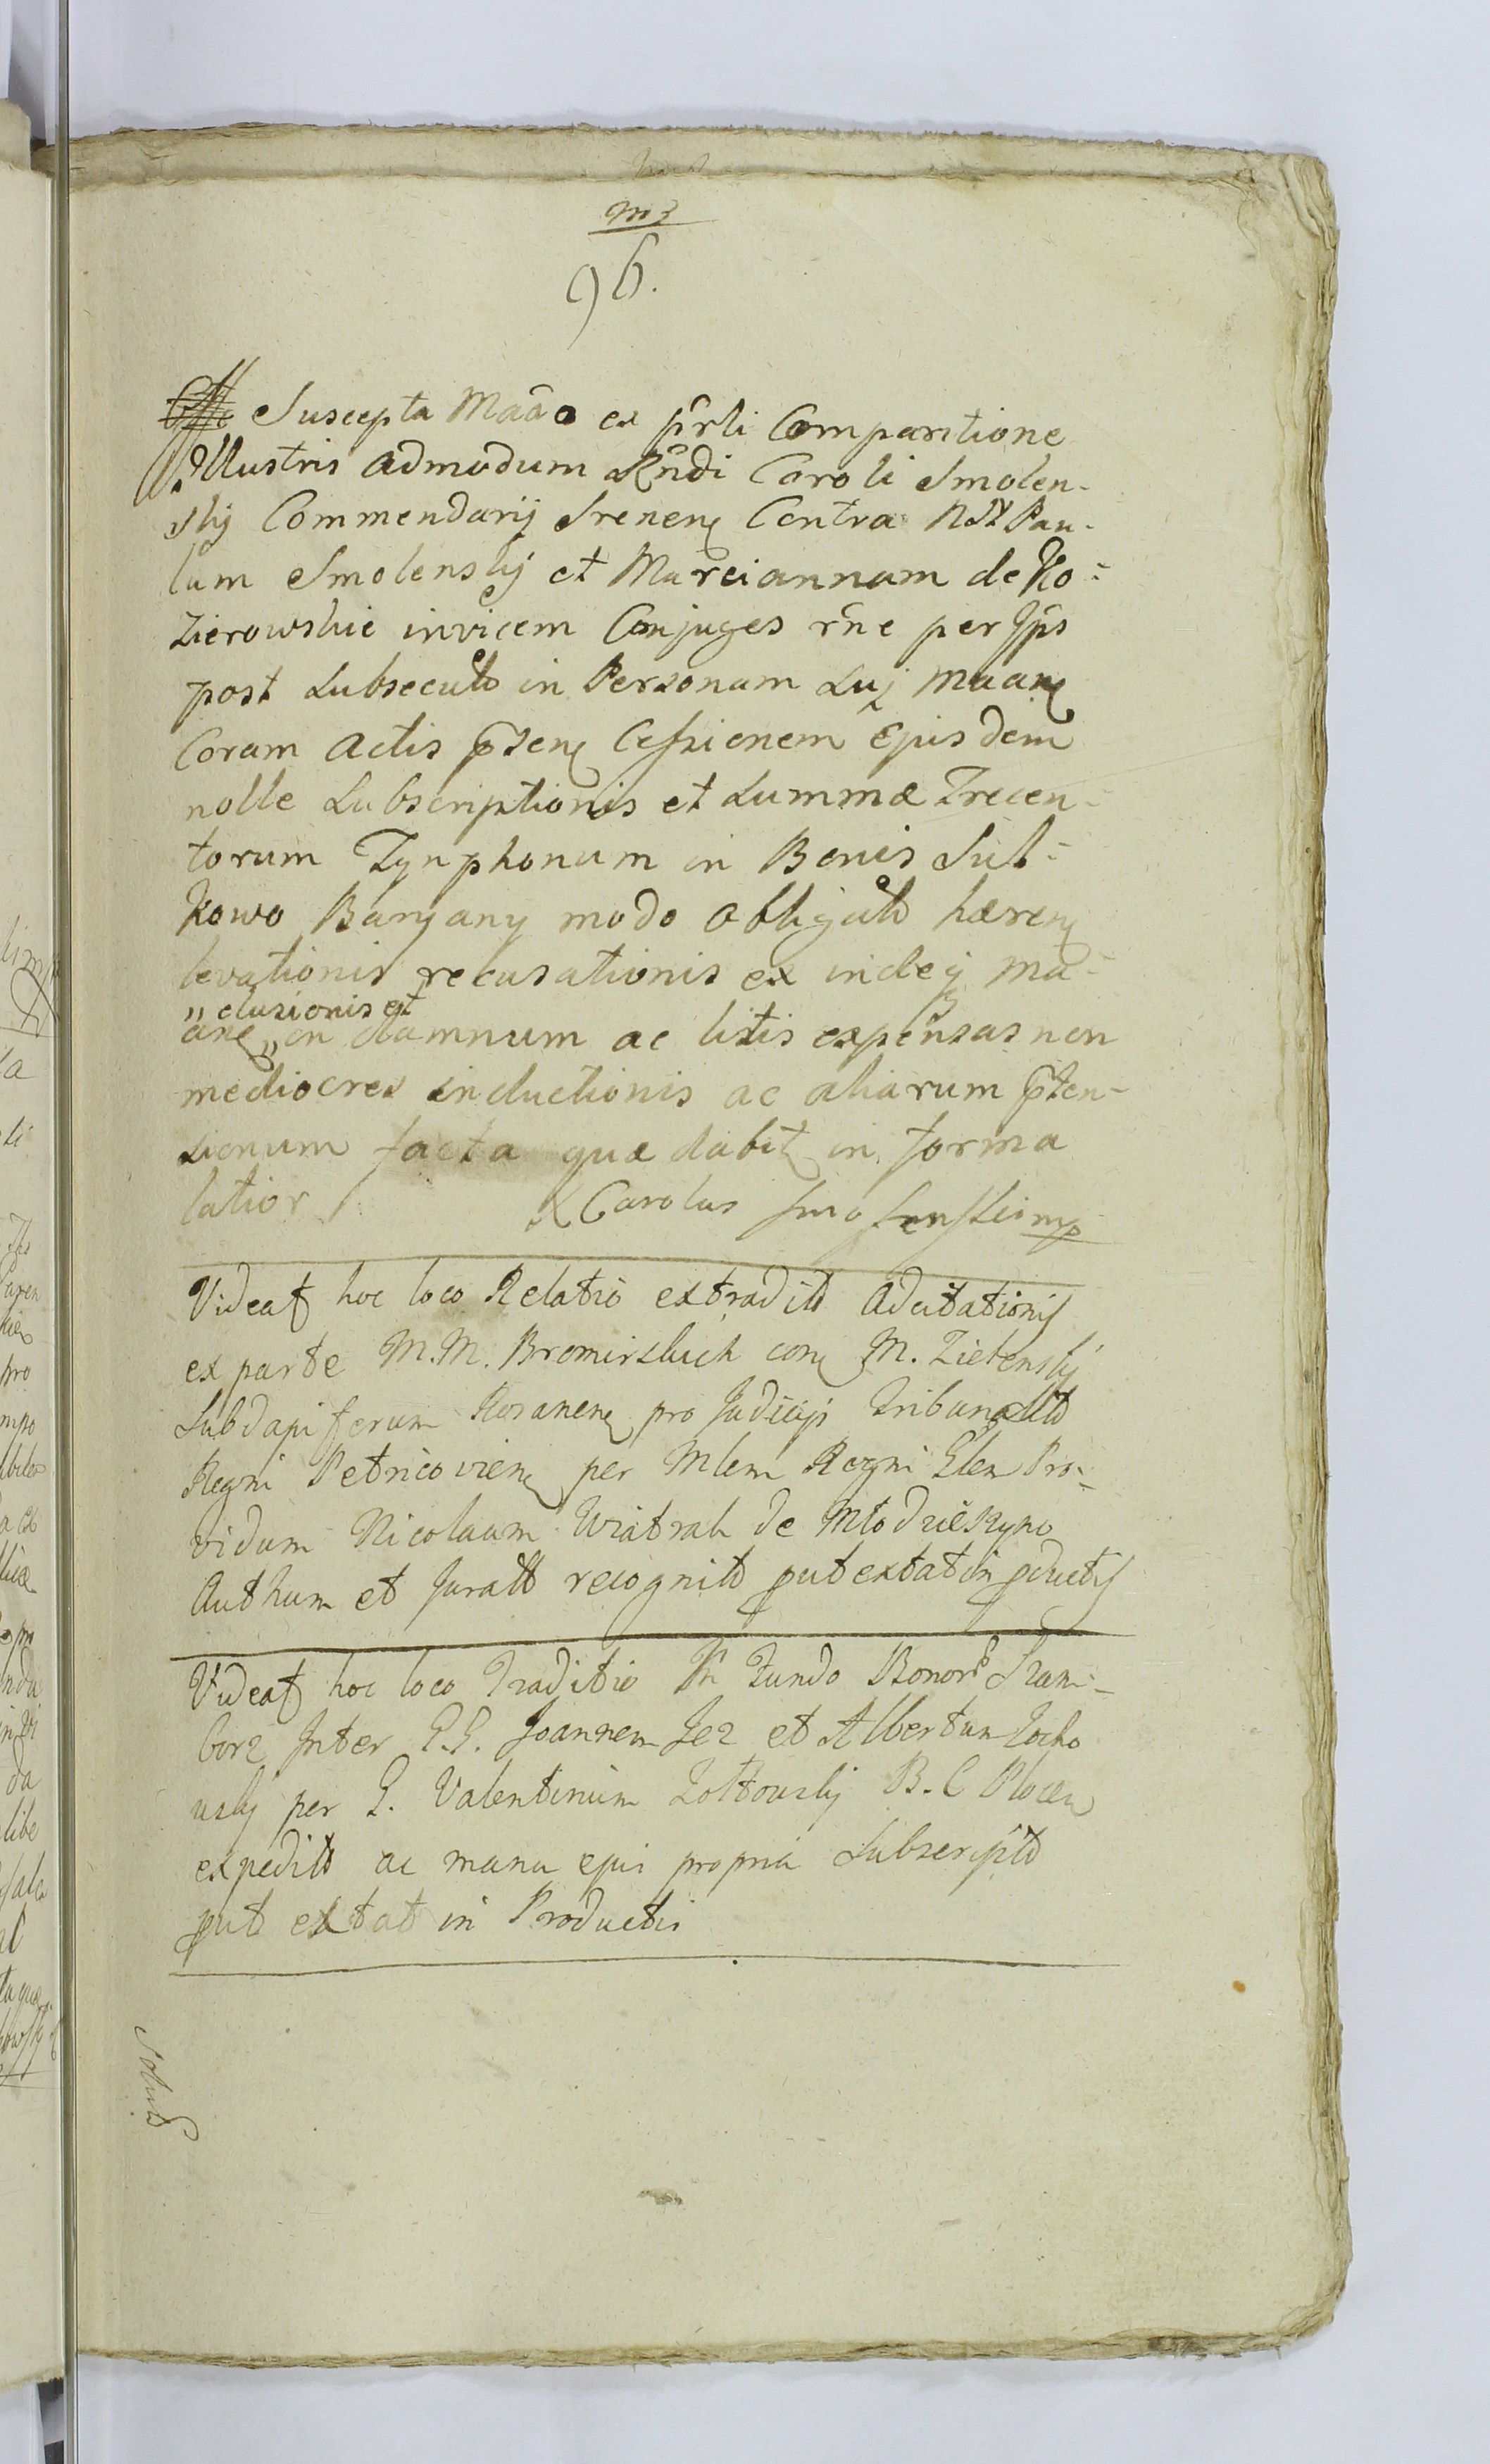 96.
Suscepta Maão ex p̃rli Comparitione
Illustris admodum Rñdi Caroli Smolen-
skij Commendarij Srenen Contra Pau-
lum Smolenskij et Marciannam de Ko-
zierowskie invicem Conjuges rñe per
post subsecutō in Personam sui Maan
Coram Actis p̃sen Cessionem Ejusdem
nolle subscriptionis et summæ Trecen-
torum Tynphonum in Bonis Sul-
kowo Baryany modo obligatō hæren
levationis recusationis ex indeq ma-
elusionis et
ãne in damnum ac litis expensas non
mediocres inductionis ac aliarum p̃ten-
sionum facta quæ dabit in forma
latior / X Carolus Smolenski mp
Videat hoc loco Relatio extraditō Adcitationis
ex parte M.M. Bromirskich con M. Zielenskij
Subdapiferum Rosanen pro Judicijs Tribunalitō
Regni Petricovien per Mlem Regni Glem Pro-
vidum Nicolaum Wiatrak de Młodzieszyno
Authum et Juratō recognitō put extat in pductis
Videat hoc loco Traditio In Fundo Bonor Sram-
borz Inter G.G. Joannem Jez et Albertum Zocho
wskij per G. Valentinum Zołtowskij B. C Plocen
expeditō ac manu ejus propria Subscriptō
put extat in Productis